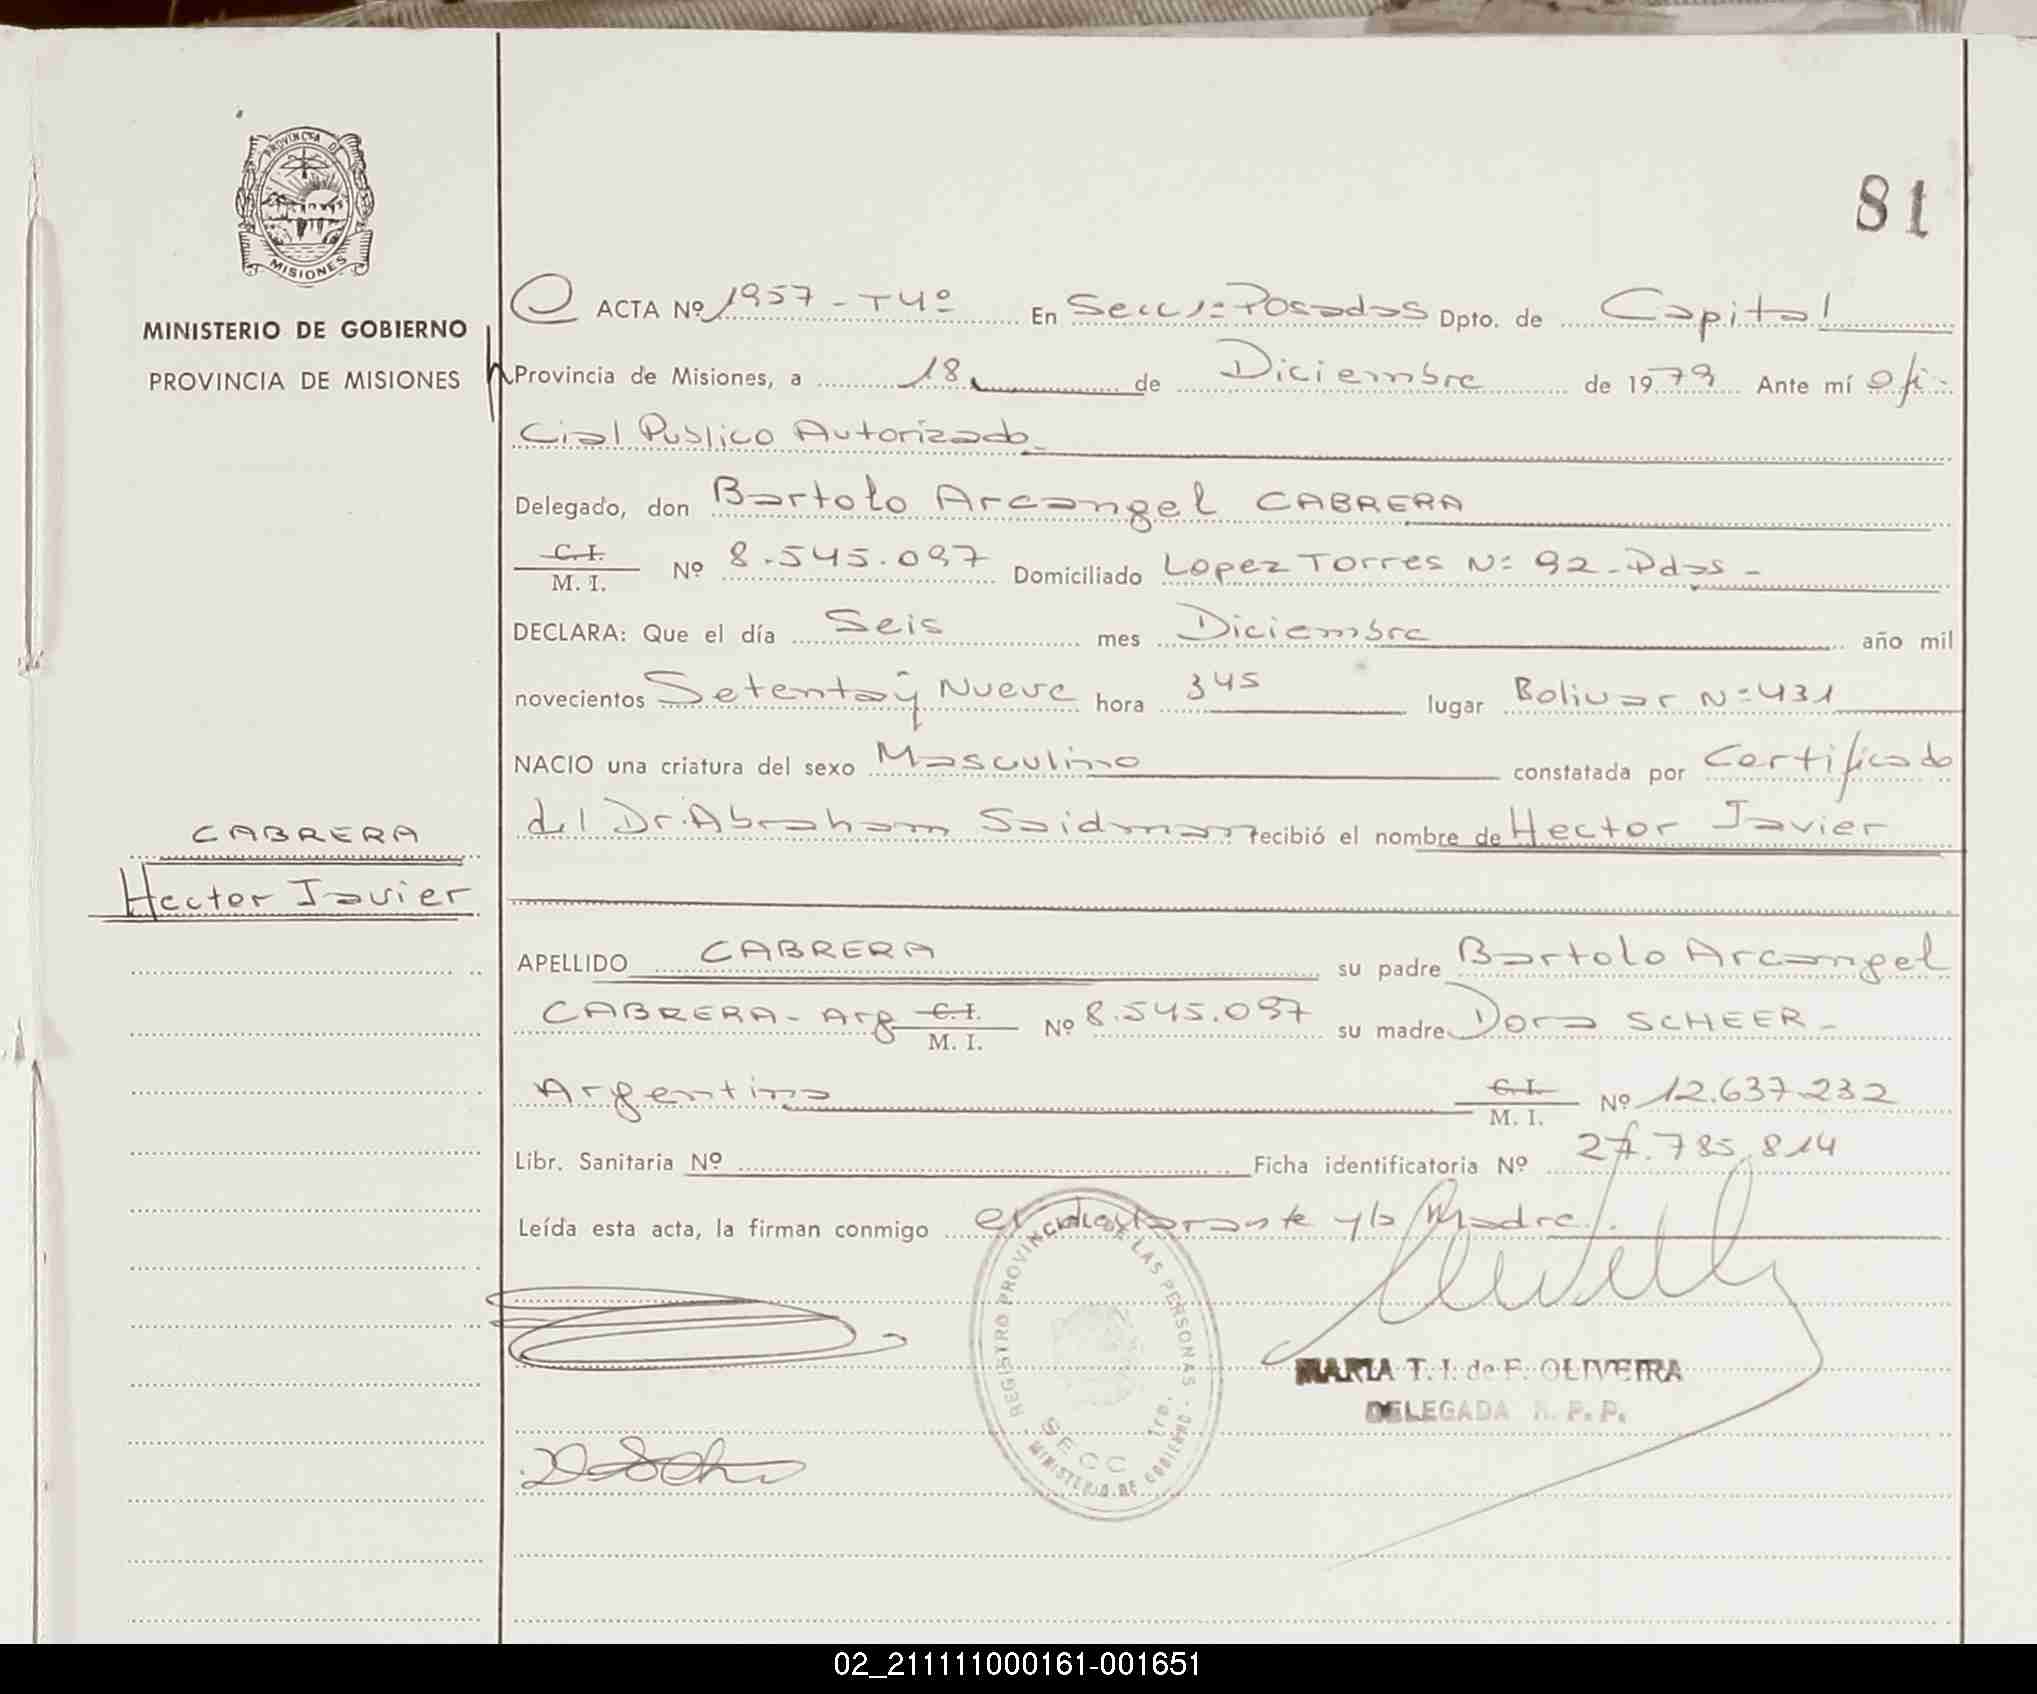 81
PROVINCIA DE
MISIONES
MINISTERIO DE GOBIERNO
PROVINCIA DE MISIONES
ACTA Nº 1957 - T4º En Secc 1= Posadas Dpto. de Capital
Provincia de Misiones, a 18 de Diciembre de 1979 Ante mí Ofi-
cial Publico Autorizado
Delegado, don Bartolo Arcangel CABRERA
C. I.
M. I. Nº 8.545.097 Domiciliado Lopez Torres N= 92 - Pdas -
DECLARA: Que el día Seis mes Diciembre año mil
novecientos Setenta y Nueve hora 345 lugar Bolivar N= 431
NACIO una criatura del sexo Masculino constatada por Certificado
del Dr. Abraham Saidman recibió el nombre de Hector Javier
CABRERA
Hector Javier
APELLIDO CABRERA su padre Bartolo Arcangel
CABRERA - Arg C. I. M. I. Nº 8.545.097 su madre Dora SCHEER -
Argentina C. I. M. I. Nº 12.637.232
Libr. Sanitaria Nº Ficha identificatoria Nº 27.785.814
Leída esta acta, la firman conmigo el declarante y la Madre.
REGISTRO PROVINCIAL DE LAS PERSONAS
SECC 1ra.
MINISTERIO DE GOBIERNO
MARIA T. I. de F. OLIVEIRA
DELEGADA R. P. P.
02_211111000161-001651